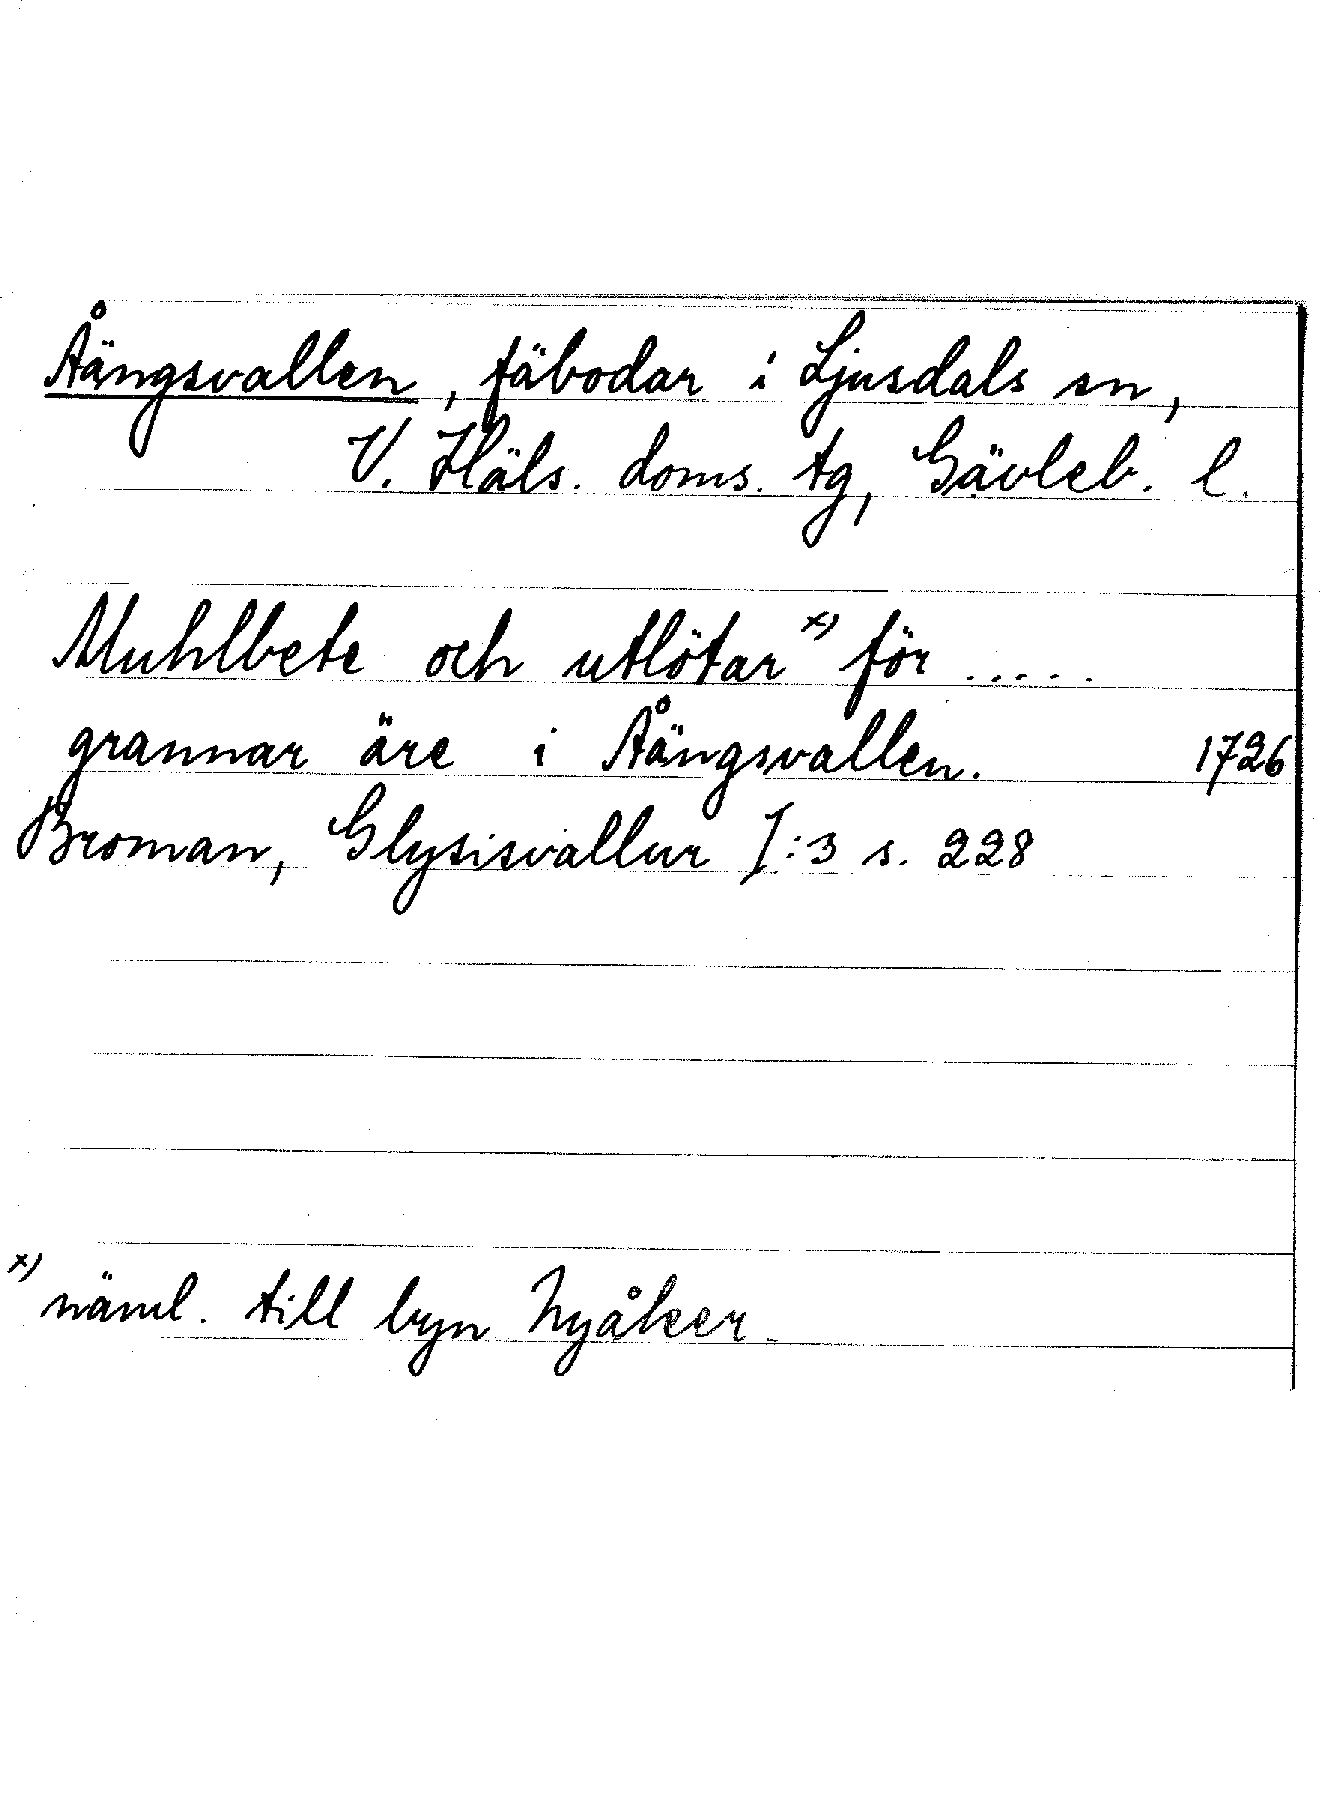 Åängsvallen, fäbodar i Ljusdals sn,
V. Häls. doms. tg, Gävleb. l.
Muhlbete och utlötar x) för .....
grannar äre i Åängsvallen. 1726
Broman, Glysisvallur I:3 s. 228
x) näml. till byn Nyåker.